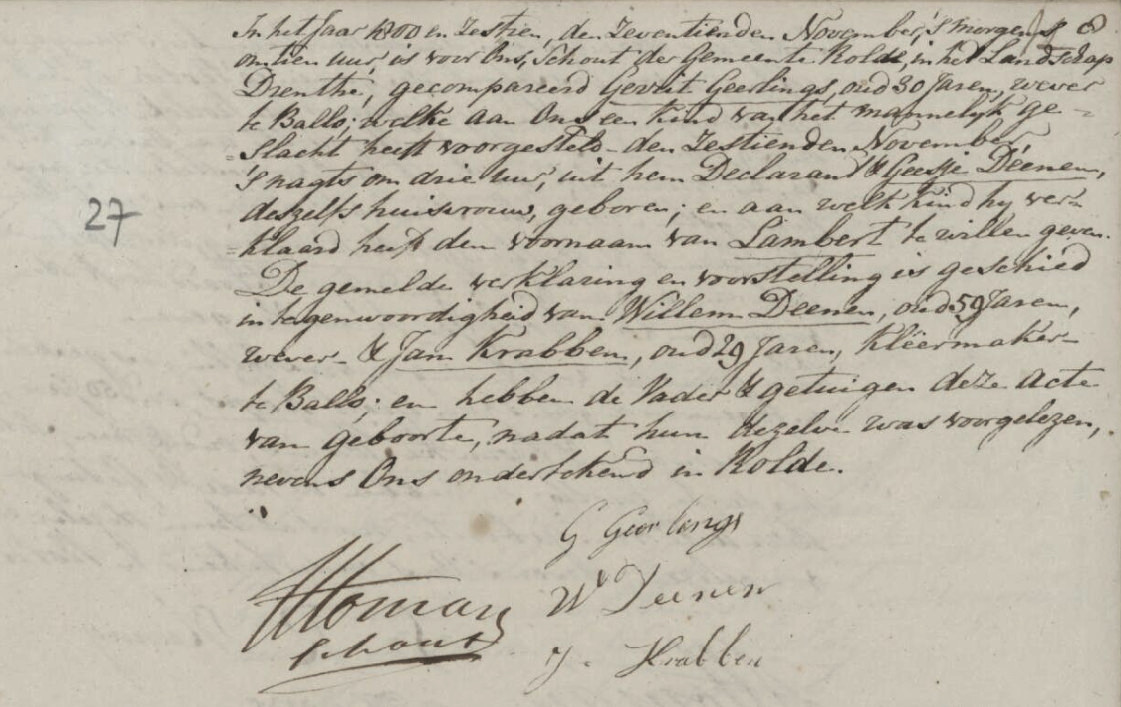 In het Jaar 1800 en Zestien, den Zeventienden November, 's morgens
om tien uur, is voor Ons, Schout der Gemeente Rolde, in het Landschap
Drenthe, gecompareerd Gerrit Geerlings, oud 30 Jaren, wever
te Ballo; welke aan Ons een Kind van het mannelyk ge-
=slacht heeft voorgesteld – den Zestienden November,
's nagts om drie uur, uit hem Declarand & Geesje Deenen,
deszelfs huisvrouw, geboren; en aan welk Kind hy ver=
=klaard heeft den voornaam van Lambert te willen geven.
De gemelde verklaring en voorstelling is geschied
in tegenwoordigheid van Willem Deenen, oud 59 Jaren,
wever – & Jan Krabben, oud 29 Jaren, Kléermaker –
te Ballo; en hebben de Vader & getuigen deze acte
van geboorte, nadat hun dezelve was voorgelezen,
nevens Ons ondertekend in Rolde.
27
G Geerlings
W Deenen
J. Krabben
Schout